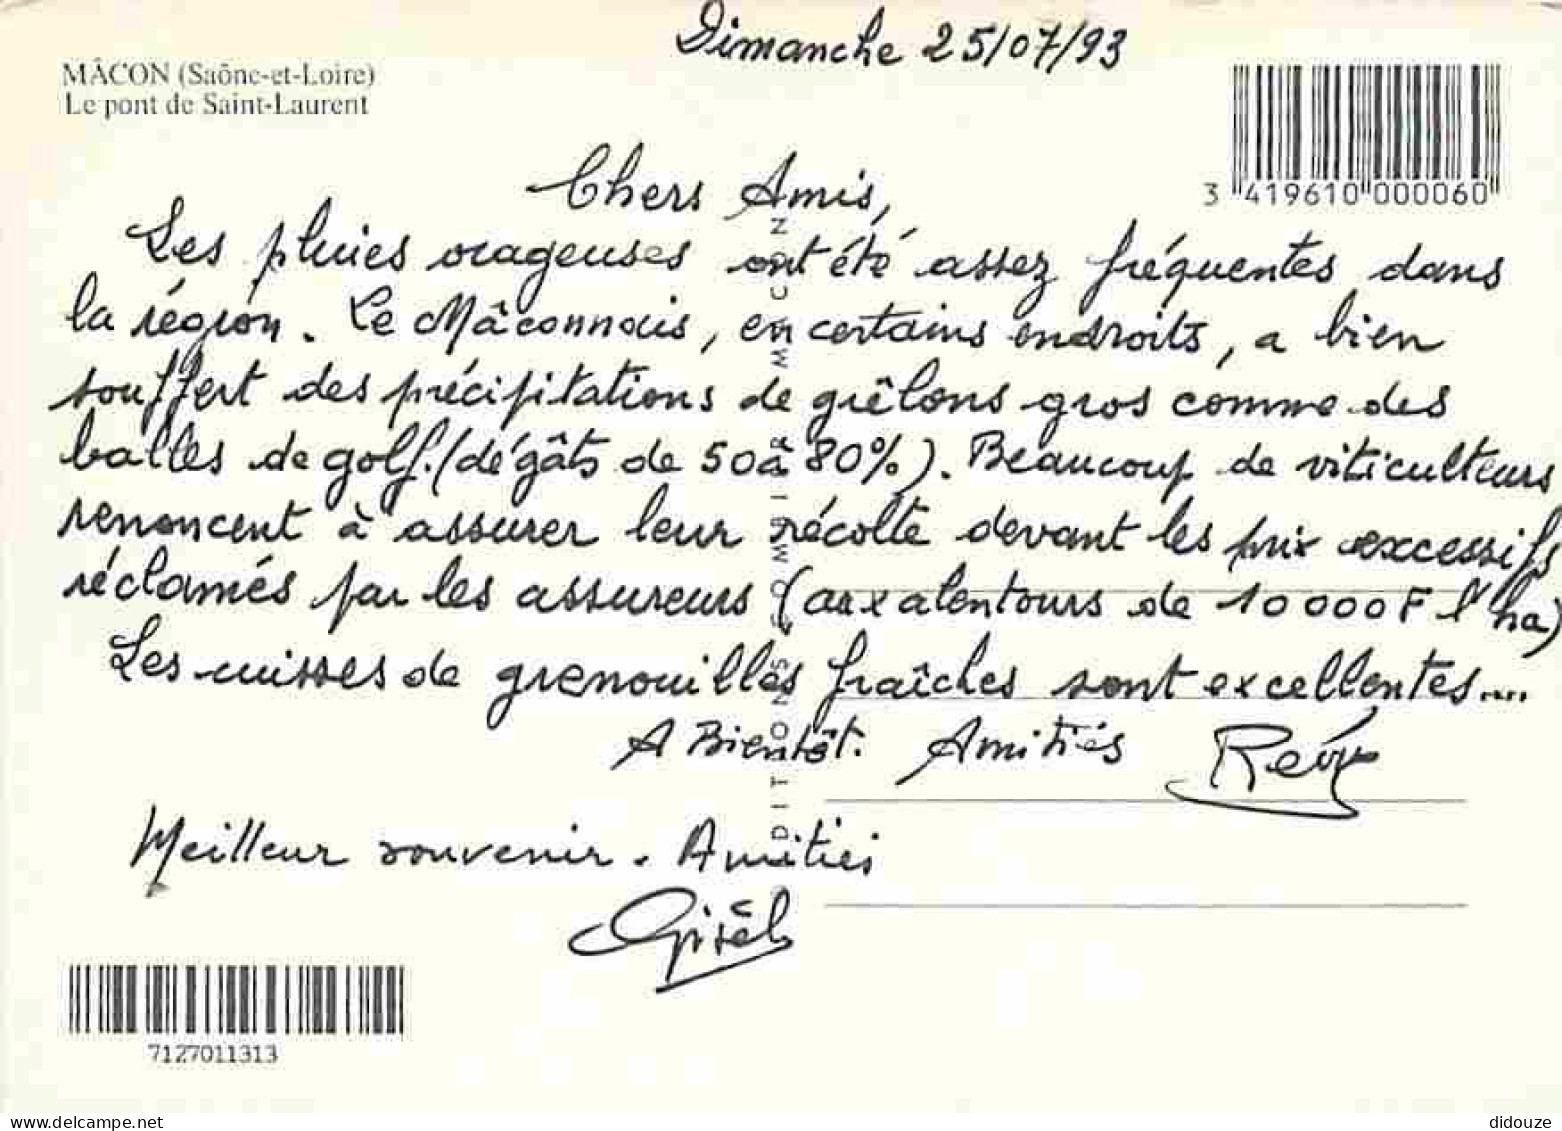 Dimanche 25/07/93
MÂCON (Saône-et-Loire)
Le pont de Saint-Laurent
3 419610 000060
Chers Amis,
Les pluies orageuses ont été assez fréquentes dans
la région. Le Mâconnais, en certains endroits, a bien
souffert des précipitations de grêlons gros comme des
balles de golf. (dégâts de 50 à 80%). Beaucoup de viticulteurs
renoncent à assurer leur récolte devant les prix excessifs
réclamés par les assureurs (aux alentours de 10 000F l'ha)
Les cuisses de grenouilles fraîches sont excellentes....
A Bientôt. Amitiés
Meilleur souvenir. Amitiés
7127011313
www.delcampe.net
didouze